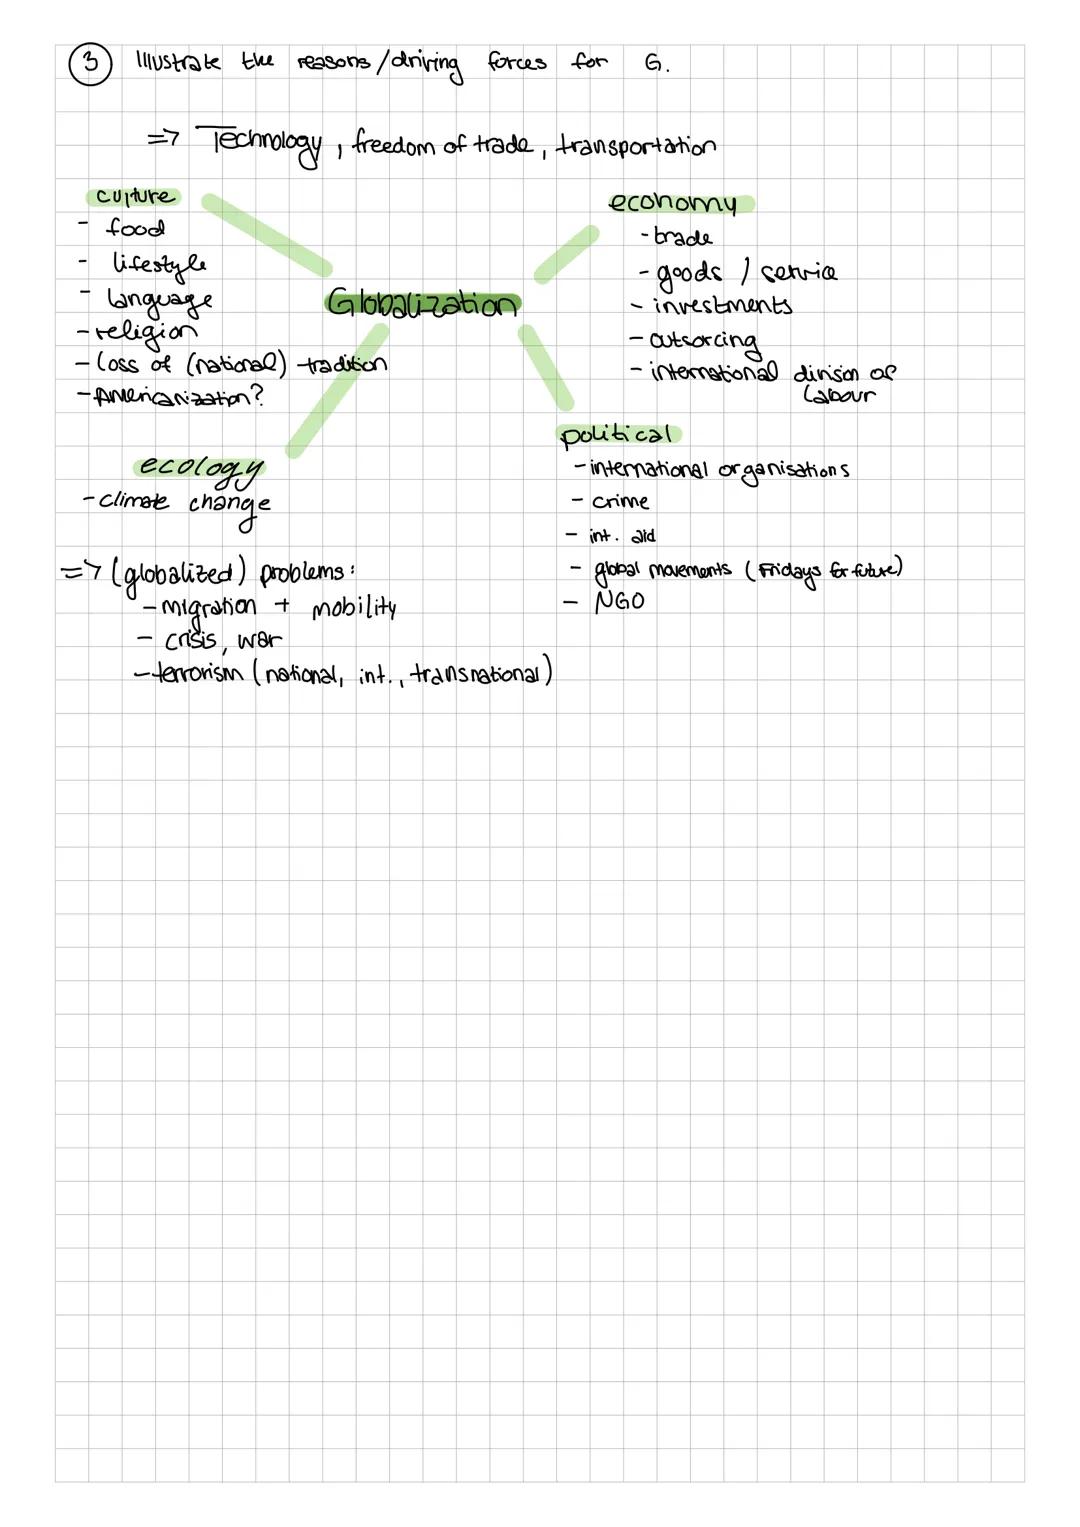 3 Illustrate the reasons/driving forces for G.
=> Technology, freedom of trade, transportation
culture
- food
- lifestyle
- language
- religion
- loss of (national) tradition
- Americanization?
Globalization
economy
- trade
- goods / service
- investments
- outsorcing
- international division of
labour
ecology
- climate change
political
- international organisations
- crime
- int. aid
- global movements (Fridays for future)
- NGO
=> (globalized) problems:
- migration + mobility
- crisis, war
- terrorism (national, int., transnational)